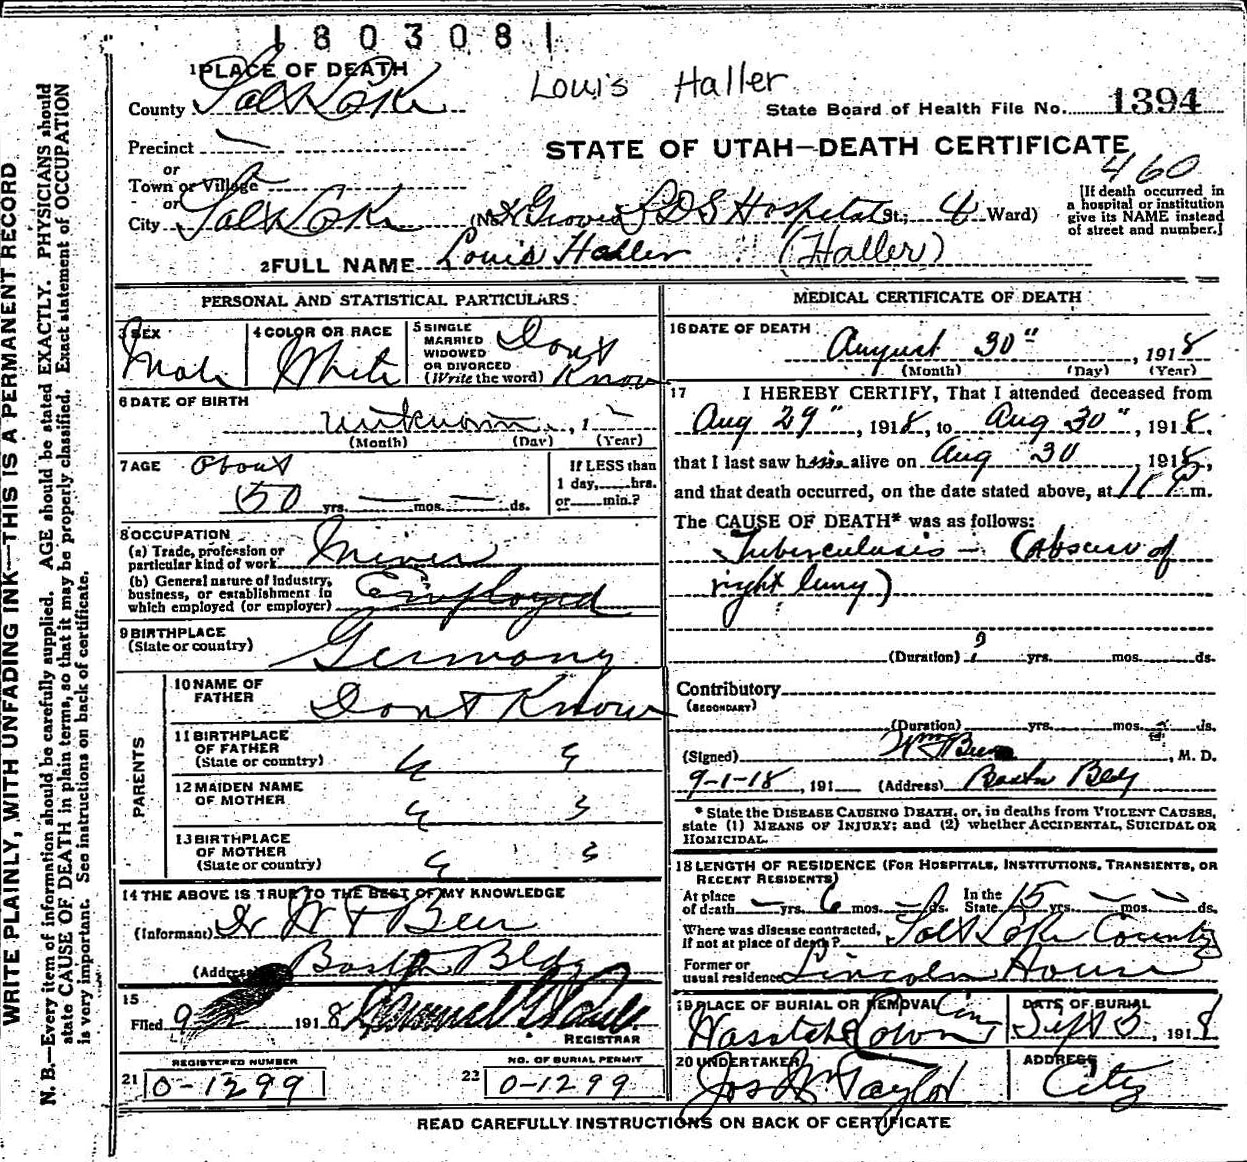 1803081
1 PLACE OF DEATH
Louis Haller
County Salt Lake
State Board of Health File No. 1394
Precinct
STATE OF UTAH—DEATH CERTIFICATE
460
or
Town or Village
or
City Salt Lake (No. Groves LDS Hospital St.; 4 Ward)
[If death occurred in
a hospital or institution
give its NAME instead
of street and number.]
2 FULL NAME Louis Haller (Haller)
WRITE PLAINLY, WITH UNFADING INK—THIS IS A PERMANENT RECORD
N. B.—Every item of information should be carefully supplied. AGE should be stated EXACTLY. PHYSICIANS should
state CAUSE OF DEATH in plain terms, so that it may be properly classified. Exact statement of OCCUPATION
is very important. See instructions on back of certificate.
PERSONAL AND STATISTICAL PARTICULARS
3 SEX
Male
4 COLOR OR RACE
White
5 SINGLE
MARRIED
WIDOWED
OR DIVORCED
(Write the word)
Dont Know
6 DATE OF BIRTH
unknown, 1
(Month) (Day) (Year)
7 AGE
about
50 yrs. — mos. — ds.
If LESS than
1 day, hrs.
or min.?
8 OCCUPATION
(a) Trade, profession or
particular kind of work Miner
(b) General nature of industry,
business, or establishment in
which employed (or employer) Employed
9 BIRTHPLACE
(State or country) Germany
PARENTS
10 NAME OF
FATHER Dont Know
11 BIRTHPLACE
OF FATHER
(State or country) " "
12 MAIDEN NAME
OF MOTHER " "
13 BIRTHPLACE
OF MOTHER
(State or country) " "
14 THE ABOVE IS TRUE TO THE BEST OF MY KNOWLEDGE
(Informant) Dr W F Beer
(Address) Boston Bldg
15
Filed 9/2 1918
REGISTRAR
REGISTERED NUMBER
21 0-1299
NO. OF BURIAL PERMIT
22 0-1299
MEDICAL CERTIFICATE OF DEATH
16 DATE OF DEATH
August 30", 1918
(Month) (Day) (Year)
17 I HEREBY CERTIFY, That I attended deceased from
Aug 29", 1918, to Aug 30", 1918,
that I last saw him alive on Aug 30 1918,
and that death occurred, on the date stated above, at 11 P m.
The CAUSE OF DEATH* was as follows:
Tuberculosis — (Abscess of
right lung)
(Duration) ? yrs. mos. ds.
Contributory
(SECONDARY)
(Duration) yrs. mos. ds.
(Signed) Wm F Beer, M. D.
9-1-18, 191 (Address) Boston Bldg
* State the DISEASE CAUSING DEATH, or, in deaths from VIOLENT CAUSES,
state (1) MEANS OF INJURY; and (2) whether ACCIDENTAL, SUICIDAL OR
HOMICIDAL.
18 LENGTH OF RESIDENCE (FOR HOSPITALS, INSTITUTIONS, TRANSIENTS, OR
RECENT RESIDENTS)
At place
of death — yrs. 6 mos. — ds. In the
State 15 yrs. — mos. — ds.
Where was disease contracted,
if not at place of death? Salt Lake County
Former or
usual residence Lincoln House
19 PLACE OF BURIAL OR REMOVAL
Wasatch Lawn Cem
DATE OF BURIAL
Sept 3, 1918
20 UNDERTAKER
Jos Wm Taylor
ADDRESS
City
READ CAREFULLY INSTRUCTIONS ON BACK OF CERTIFICATE